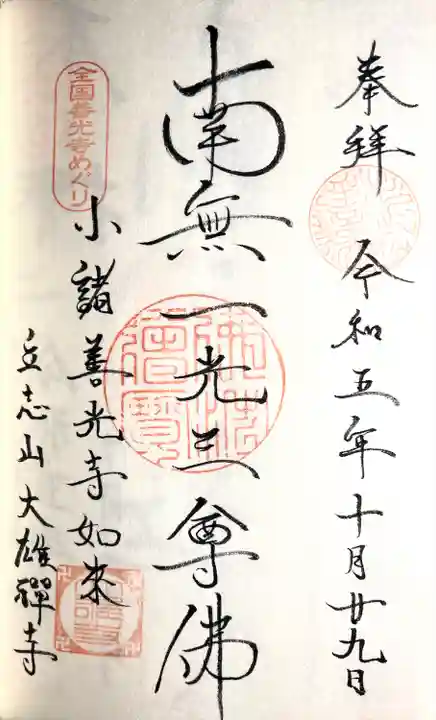 奉拜 令和五年十月廿九日
南無一光三尊佛
全国善光寺めぐり
小諸善光寺如来
立志山大雄禪寺